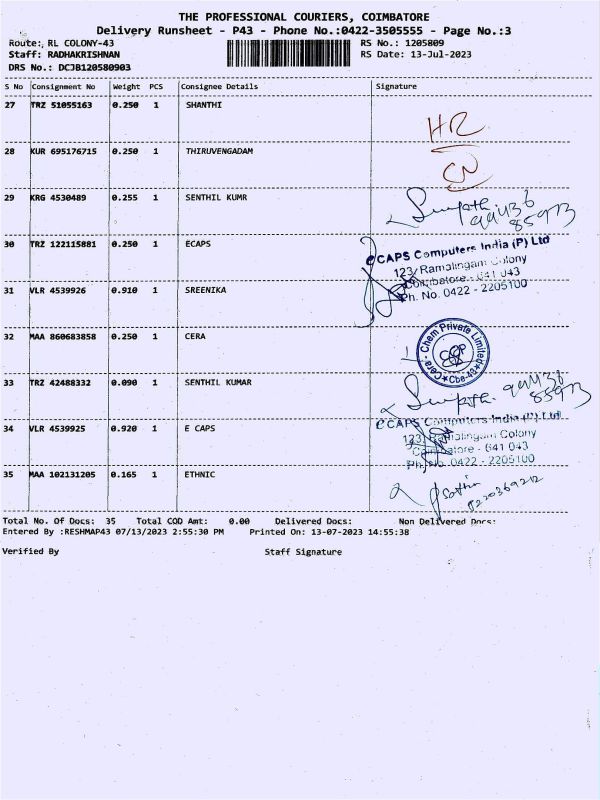 THE PROFESSIONAL COURIERS, COIMBATORE
Delivery Runsheet - P43 - Phone No.:0422-3505555 - Page No.:3
Route:, RL COLONY-43 RS No.: 1205809
Staff: RADHAKRISHNAN RS Date: 13-Jul-2023
DRS No.: DCJB120580903
S No Consignment No Weight PCS Consignee Details Signature
27 TRZ 51055163 0.250 1 SHANTHI
HR
28 KUR 695176715 0.250 1 THIRUVENGADAM
CN
29 KRG 4530489 0.255 1 SENTHIL KUMR
994136
85973
30 TRZ 122115881 0.250 1 ECAPS
eCAPS Computers India (P) Ltd
123, Ramalingam Colony
Coimbatore - 641 043
Ph. No. 0422 - 2205100
31 VLR 4539926 0.910 1 SREENIKA
32 MAA 860683858 0.250 1 CERA
Cera Chem Private Limited
Cbe-43
33 TRZ 42488332 0.090 1 SENTHIL KUMAR
994136
85973
34 VLR 4539925 0.920 1 E CAPS
eCAPS Computers India (P) Ltd
123, Ramalingam Colony
Coimbatore - 641 043
Ph. No. 0422 - 2205100
35 MAA 102131205 0.165 1 ETHNIC
Total No. Of Docs: 35 Total COD Amt: 0.00 Delivered Docs: Non Delivered Docs:
Entered By :RESHMAP43 07/13/2023 2:55:30 PM Printed On: 13-07-2023 14:55:38
Verified By Staff Signature